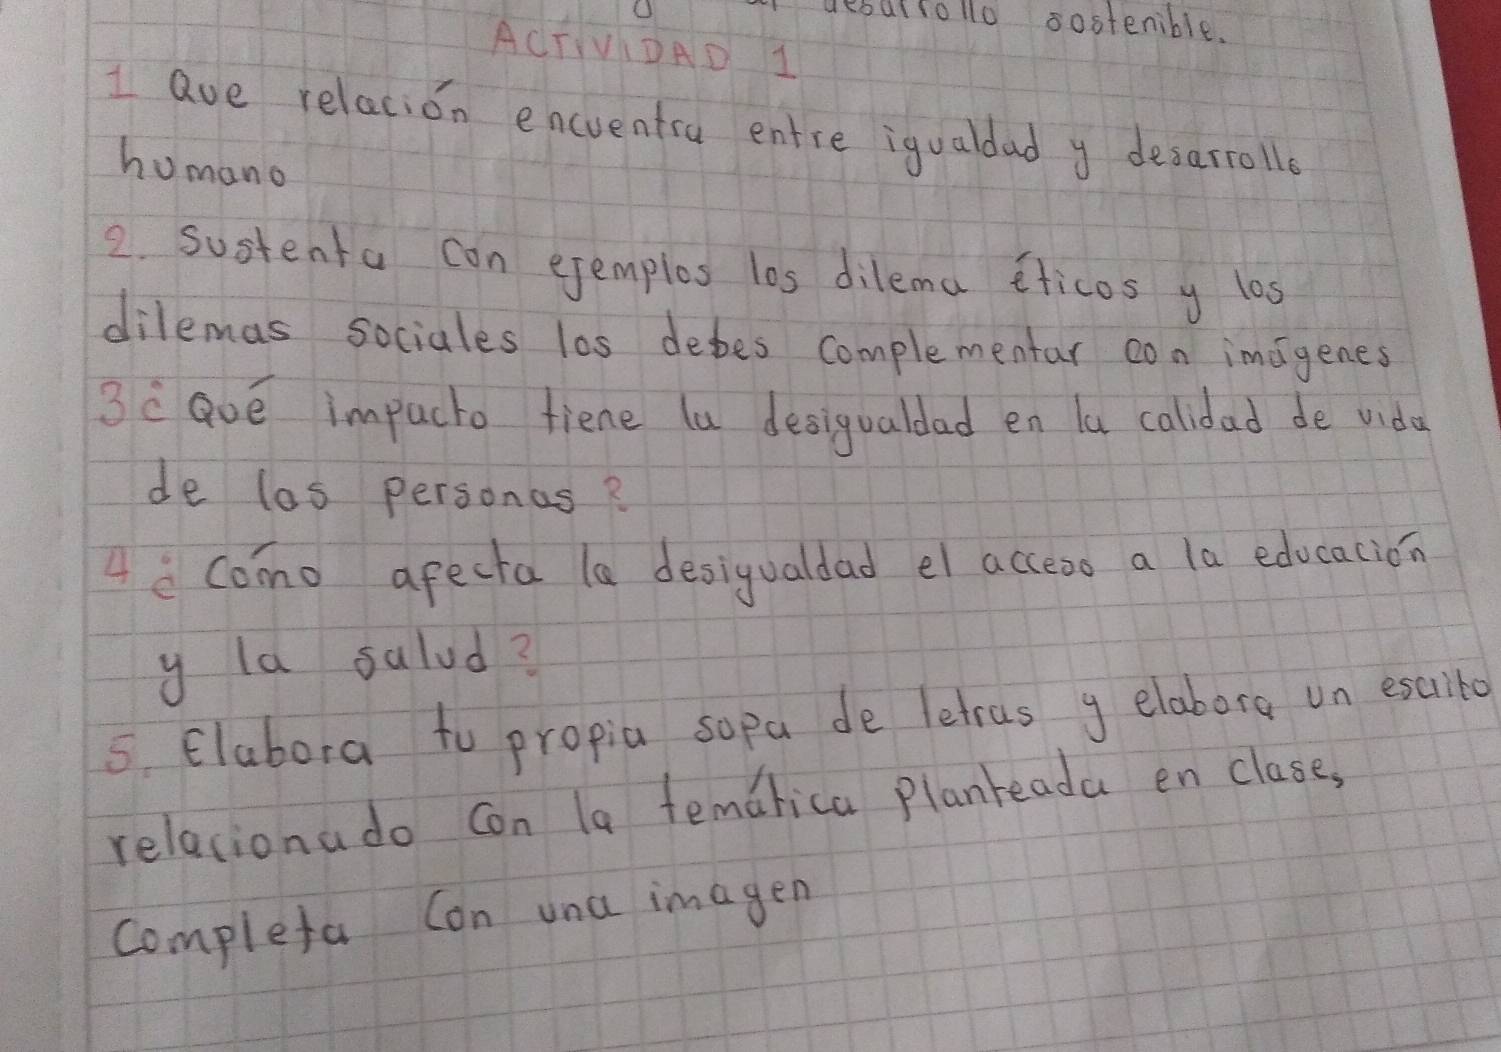 desarrollo sostenible.
ACTIVIDAD 1
1 Que relación encuentra entre igualdad y desarrollo
humano
2. sustenta con ejemplos los dilema éticos y los
dilemas sociales los debes complementar con imágenes
3 ¿Qué impacto tiene la desigualdad en la calidad de vida
de las personas?
4 ¿Cómo afecta la desigualdad el acceso a la educación
y la salud?
5. Elabora tu propia sopa de letras y elabora un escrito
relacionado con la temática planteada en clase,
completa con una imagen